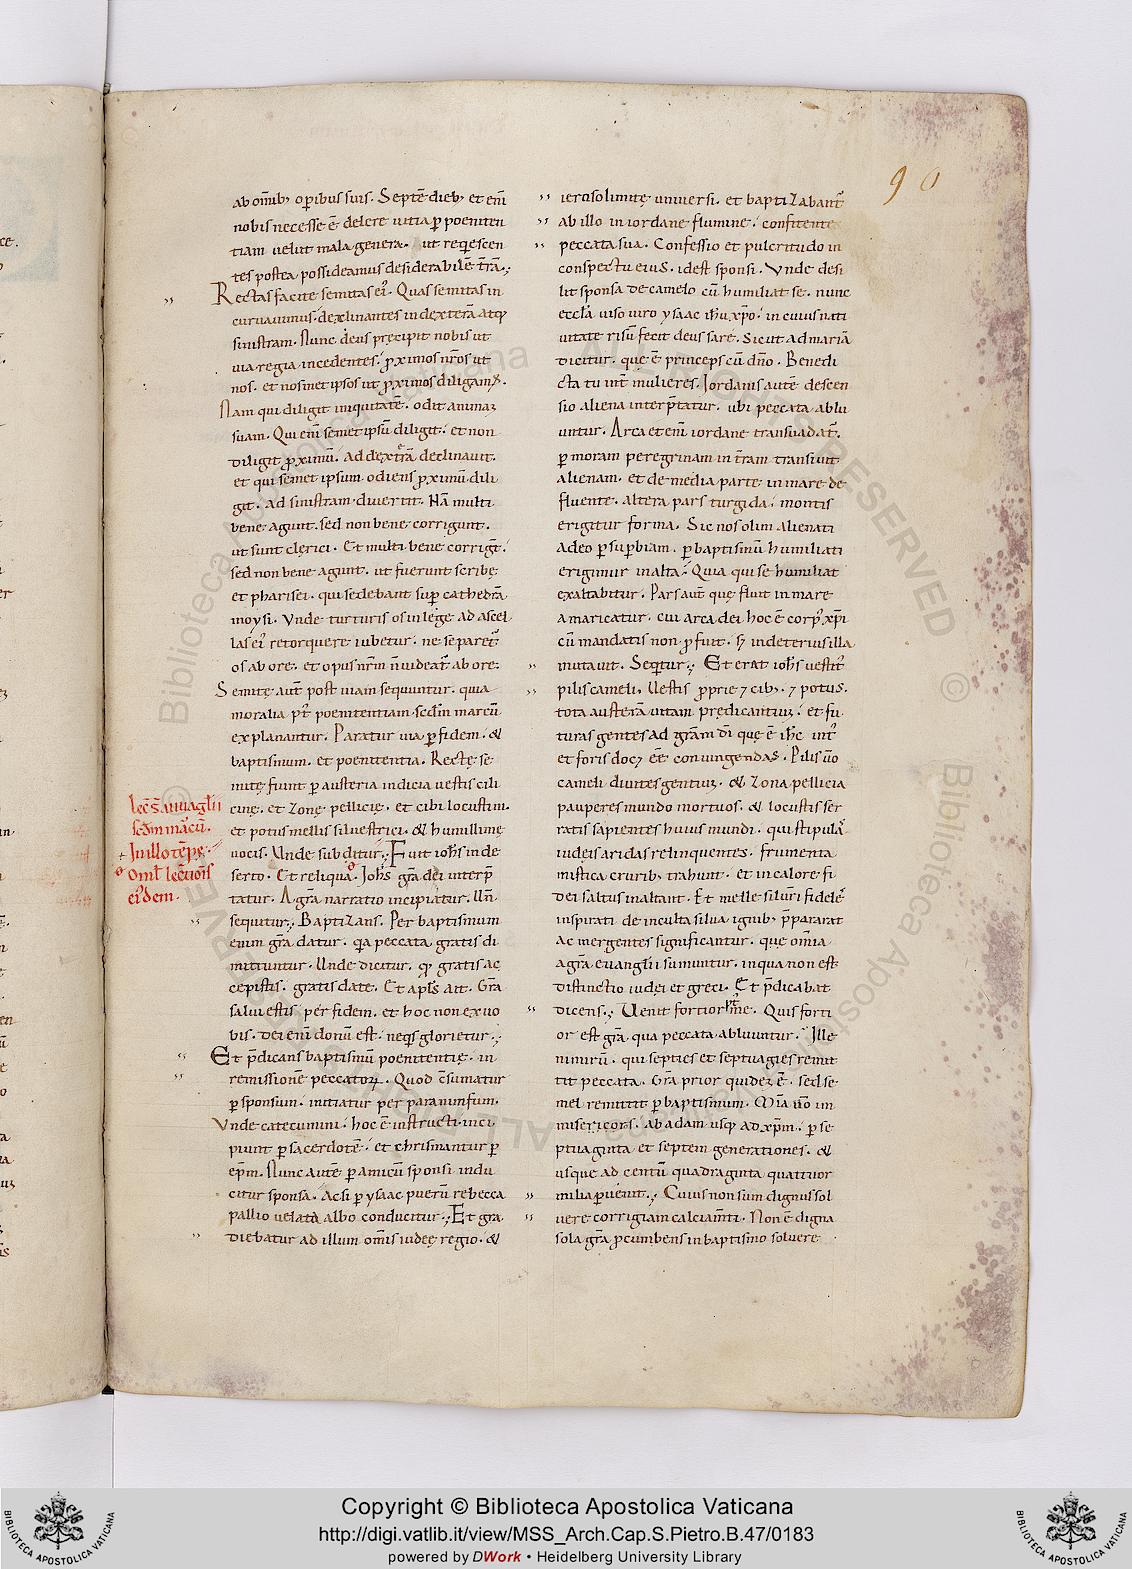 90
ab om̅ib; op̱ibus suis. Septē dieb; et em̅
nobis necesse ē delere uitia p̱ poeniten
tiam uelut mala genera. ut req̇escen
tes postea possideamus desiderabilē t̅ra̅.
Rectas facite semitas ei᷒. Quas semitas in
curuauimus. declinantes in dexterā atq;
sinistram. Nunc deus precipit nobis ut
uia regia incedentes. ꝓximos nr̅os ut
nos. et nosmet ipsos ut ꝓximos diligam᷒.
Nam qui diligit iniquitatē. odit animaꝫ
suam. Qui em̅ semet ipsū diligit. et non
diligit ꝓximū. ad dextera̅ declinauit.
et qui semet ipsum odiens ꝓximū dili
git. ad sinistram diuertit. Nā multi
bene agunt. sed non bene corrigunt.
ut sunt clerici. Et multi bene corrigt̅.
sed non bene agunt. ut fuerunt scribę
et pharisei. qui sedebant sup̱ cathedrā
moysi. Vnde turturis os in lege ad ascel
las ei᷒ retorquere iubetur. ne separet᷒
os ab ore. et opus nr̅m n̅ uideat᷒ ab ore.
Semitę aut̅ post uiam sequuntur. quia
moralia p᷒t poenitentiam secd̅m marcū
explanantur. Paratur uia p̱ fidem. &
baptismum. et poenitentia. Rectę se
mitę fiunt p̱ austeria indicia uestis cili
cinę. et zonę pellicię. et cibi locustini.
et potus mellis siluestrici. & humillimę
uocis. Vnde subditur. Fuit ioh̅s in de
serto. Et reliqua. Joh̅s gr̅a dei interp̅
tatur. A gr̅a narratio incipiatur. Un̅
sequitur. Baptizans. Per baptismum
enim gr̅a datur. q̇a peccata gratis di
mittuntur. Unde dicitur. qd̅ gratis ac
cepistis. gratis date. Et apl̅s ait. Gr̅a
salui estis per fidem. et hoc non ex uo
bis. dei em̅ donū est. neq̇s glorietur.
Et p̅dicans baptismū poenitentię. in
remissionē peccatoꝝ. Quod c̅sumatur
p̱ sponsum. initiatur per paranimfum.
Vnde catecumini. hoc ē instructi. inci
piunt p̱ sacerdotē. et chrismantur p̱
ep̅m. Nunc autē p̱ amicū sponsi indu
citur sponsa. Ac si p̱ ysaac puerū rebecca
pallio uelata albo conducitur. Et gra
diebatur ad illum om̅is iudeę regio. &
lec̅. s. euuagl̅ii
scd̅m marcū.
Jn illo tēpr̅ę.
Oml̅. lectionis
eiusdem.
ierosolimitę uniuersi. et baptizabant᷒
ab illo in iordane flumine. confitentes
peccata sua. Confessio et pulcritudo in
conspectu eius. idest sponsi. Vnde desi
lit sponsa de camelo cū humiliat se. nunc
eccl̅a uiso uiro ysaac ih̅u xp̅o. in cuius nati
uitate risū fecit deus sarę. Sicut ad mariā
dicitur. quę ē princeps cū dn̅o. Benedi
cta tu int̅ mulieres. Jordanis autē descen
sio aliena interp̅tatur. ubi peccata ablu
untur. Arca et em̅ iordane transuadat᷒.
p̱ moram peregrinam in t̅ram transiuit
alienam. et de media parte in mare de
fluente. altera pars turgida. montis
erigitur forma. Sic nos olim alienati
a deo p̱ sup̱biam. p̱ baptismū humiliati
erigimur in alta. Quia qui se humiliat
exaltabitur. Pars aut̅ quę fluit in mare
amaricatur. cui arca dei hoc ē corp᷒ xp̅i
cū mandatis non ꝓfuit. sꝫ in deterius illa
mutauit. Seq̇tur. Et erat ioh̅s uestit᷒
pilis cameli. Uestis ꝓprie ⁊ cib; ⁊ potus.
tota austerā uitam predicantiuꝫ. et fu
turas gentes ad gr̅am di̅ quę ē ih̅c int᷒
et foris doc; ēē coniungendas. Pilis u̅o
cameli diuites gentiuꝫ. & zona pellicia
pauperes mundo mortuos. & locustis ser
ratis sapientes huius mundi. qui stipulā
iudeis aridas relinquentes. frumenta
mistica cruribus trahunt. et in calore fi
dei saltus in altant. Et melle siluestri fideles
inspirati de inculta silua ignib; p̅pararat
ac mergentes significantur. quę om̅ia
a gr̅a euanglii sumuntur. in qua non est
distinctio iudei et greci. Et p̅dicabat
dicens. Uenit fortior me. Quis forti
or est gr̅a qua peccata abluuntur. Ille
nimirū. qui septies et septuagies remit
tit peccata. Gr̅a prior quideꝫ ē. sed se
mel remittit p̱ baptismum. Mi̅a u̅o im
misericors. ab adam usq; ad xp̅m. p̱ se
ptuaginta et septem generationes. &
usque ad centū quadraginta quattuor
milia p̱uenit. Cuius non sum dignus sol
uere corrigiam calciam̅ti. Non ē digna
sola gr̅a ꝓcumbens in baptismo soluere
Biblioteca Apostolica Vaticana
ALL RIGHTS RESERVED ©
Copyright © Biblioteca Apostolica Vaticana
http://digi.vatlib.it/view/MSS_Arch.Cap.S.Pietro.B.47/0183
powered by DWork • Heidelberg University Library
BIBLIOTECA APOSTOLICA VATICANA
BIBLIOTECA APOSTOLICA VATICANA